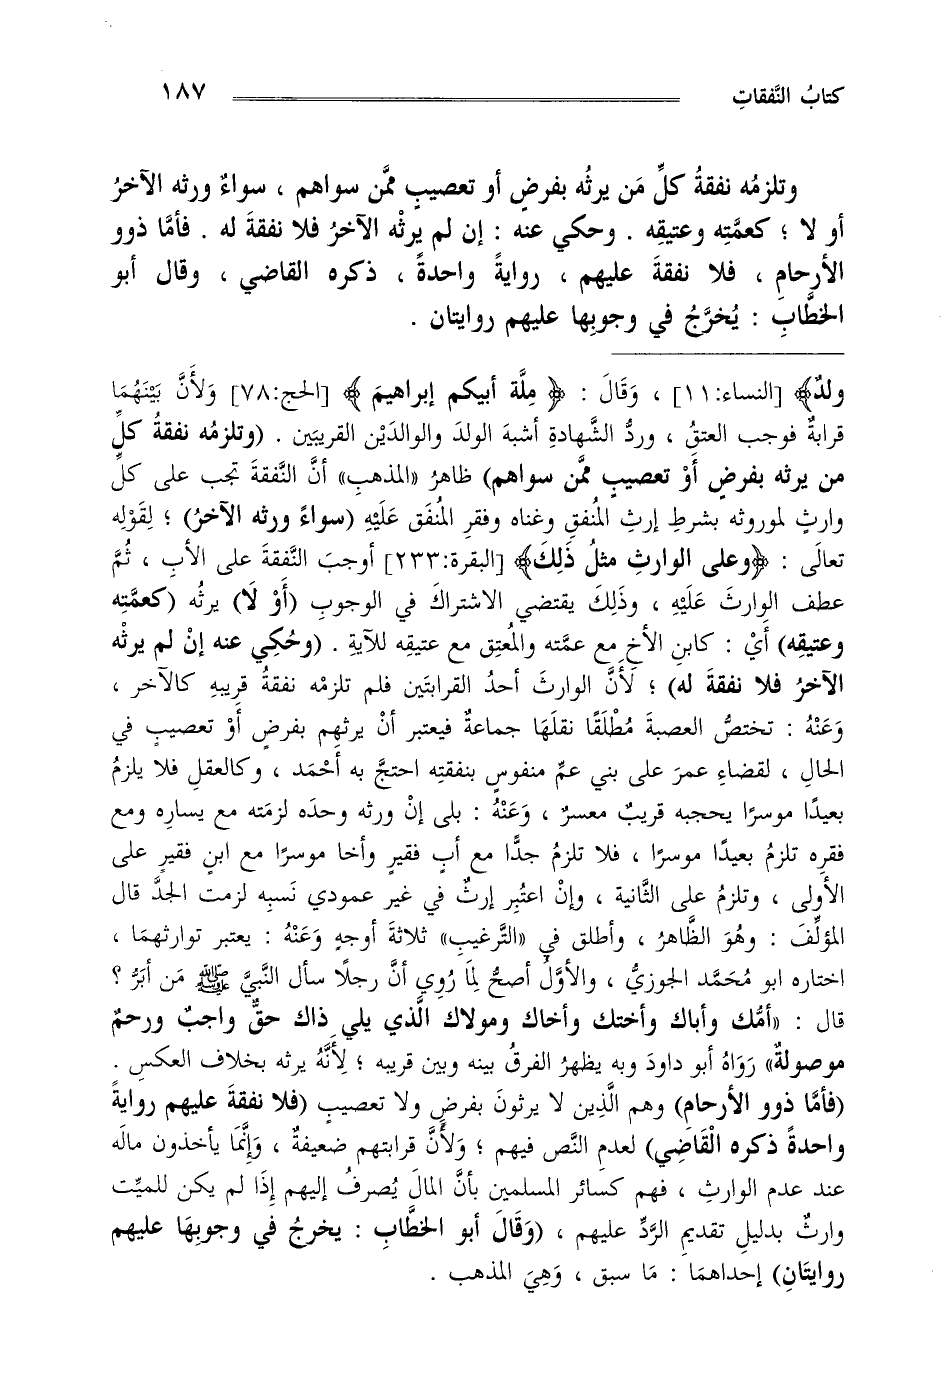 كتابُ النَّفقاتِ ١٨٧
وتلزمُه نفقةُ كلِّ مَن يرثُه بفرضٍ أو تعصيبٍ ممَّن سواهم ، سواءٌ ورثه الآخرُ
أو لا ؛ كعمَّتِه وعتيقِه . وحكي عنه : إن لم يرثْه الآخرُ فلا نفقةَ له . فأمَّا ذوو
الأرحامِ ، فلا نفقةَ عليهم ، روايةً واحدةً ، ذكره القاضي ، وقال أبو
الخطَّابِ : يُخرَّجُ في وجوبِها عليهم روايتان .
ولدٌ﴾ [النساء:١١] ، وَقَالَ : ﴿ مِلَّة أبيكم إبراهيمَ ﴾ [الحج:٧٨] وَلأَنَّ بَيْنَهُمَا
قرابةٌ فوجب العتقُ ، وردُّ الشَّهادةِ أشبهَ الولدَ والوالدَيْن القريبَين . (وتلزمُه نفقةُ كلِّ
من يرثه بفرضٍ أوْ تعصيبٍ ممَّن سواهم) ظاهرُ «المذهبِ» أنَّ النَّفقةَ تجب على كلِّ
وارثٍ لموروثه بشرطِ إرثِ المُنفقِ وغناه وفقرِ المُنفَق عَلَيْهِ (سواءً ورثه الآخرُ) ؛ لِقَوْلِه
تعالَى : ﴿وعلى الوارثِ مثلُ ذَلِكَ﴾ [البقرة:٢٣٣] أوجبَ النَّفقةَ على الأبِ ، ثُمَّ
عطف الوارثَ عَلَيْهِ ، وذَلِكَ يقتضي الاشتراكَ في الوجوبِ (أوْ لَا) يرثُه (كعمَّتِه
وعتيقِه) أيْ : كابنِ الأخِ مع عمَّته والمُعتِق مع عتيقِه للآيةِ . (وحُكِي عنه إنْ لم يرثْه
الآخرُ فلا نفقةَ له) ؛ لَأنَّ الوارثَ أحدُ القرابتَين فلم تلزمْه نفقةُ قريبِه كالآخر ،
وَعَنْهُ : تختصُّ العصبةَ مُطْلَقًا نقلَهَا جماعةٌ فيعتبر أنْ يرثَهم بفرضٍ أوْ تعصيبٍ في
الحالِ ، لقضاءِ عمرَ على بني عمِّ منفوسٍ بنفقتِه احتجَّ به أَحْمَد ، وكالعقلِ فلا يلزمُ
بعيدًا موسرًا يحجبه قريبٌ معسرٌ ، وَعَنْهُ : بلى إنْ ورثه وحدَه لزمَته مع يسارِه ومع
فقرِه تلزمُ بعيدًا موسرًا ، فلا تلزمُ جدًّا مع أبٍ فقيرٍ وأخا موسرًا مع ابنٍ فقيرٍ على
الأولى ، وتلزمُ على الثَّانية ، وإنْ اعتُبِر إرثٌ في غير عمودي نَسبِه لزمت الجدَّ قال
المؤلِّفَ : وهُوَ الظَّاهرُ ، وأطلق في «التَّرغيبِ» ثلاثةَ أوجهٍ وَعَنْهُ : يعتبر توارثهمَا ،
اختاره ابو مُحَمَّد الجوزيُّ ، والأوَّلُ أصحُّ لِمَا رُوِي أنَّ رجلًا سأل النَّبيَّ ﷺ مَن أبَرُّ ؟
قال : «أمُّك وأباك وأختك وأخاك ومولاك الَّذي يلي ذاك حقٌّ واجبٌ ورحمٌ
موصولةٌ» رَوَاهُ أبو داودَ وبه يظهرُ الفرقُ بينه وبين قريبِه ؛ لِأَنَّهُ يرثه بخلاف العكسِ .
(فأمَّا ذوو الأرحامِ) وهم الَّذِين لا يرثونَ بفرضٍ ولا تعصيبٍ (فلا نفقةَ عليهم روايةً
واحدةً ذكره الْقَاضِي) لعدمِ النَّص فيهم ؛ وَلأَنَّ قرابتهم ضعيفةٌ ، وَإِنَّمَا يأخذون مالَه
عند عدم الوارثِ ، فهم كسائر المسلمين بأنَّ المالَ يُصرفُ إليهم إذَا لم يكن للميِّت
وارثٌ بدليلِ تقديمِ الرَّدِّ عليهم ، (وَقَالَ أبو الخطَّابِ : يخرجُ في وجوبِهَا عليهم
روايتَانِ) إحداهمَا : مَا سبق ، وَهِيَ المذهب .